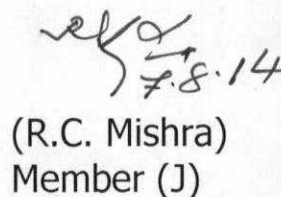 7.8.14
(R.C. Mishra)
Member (J)